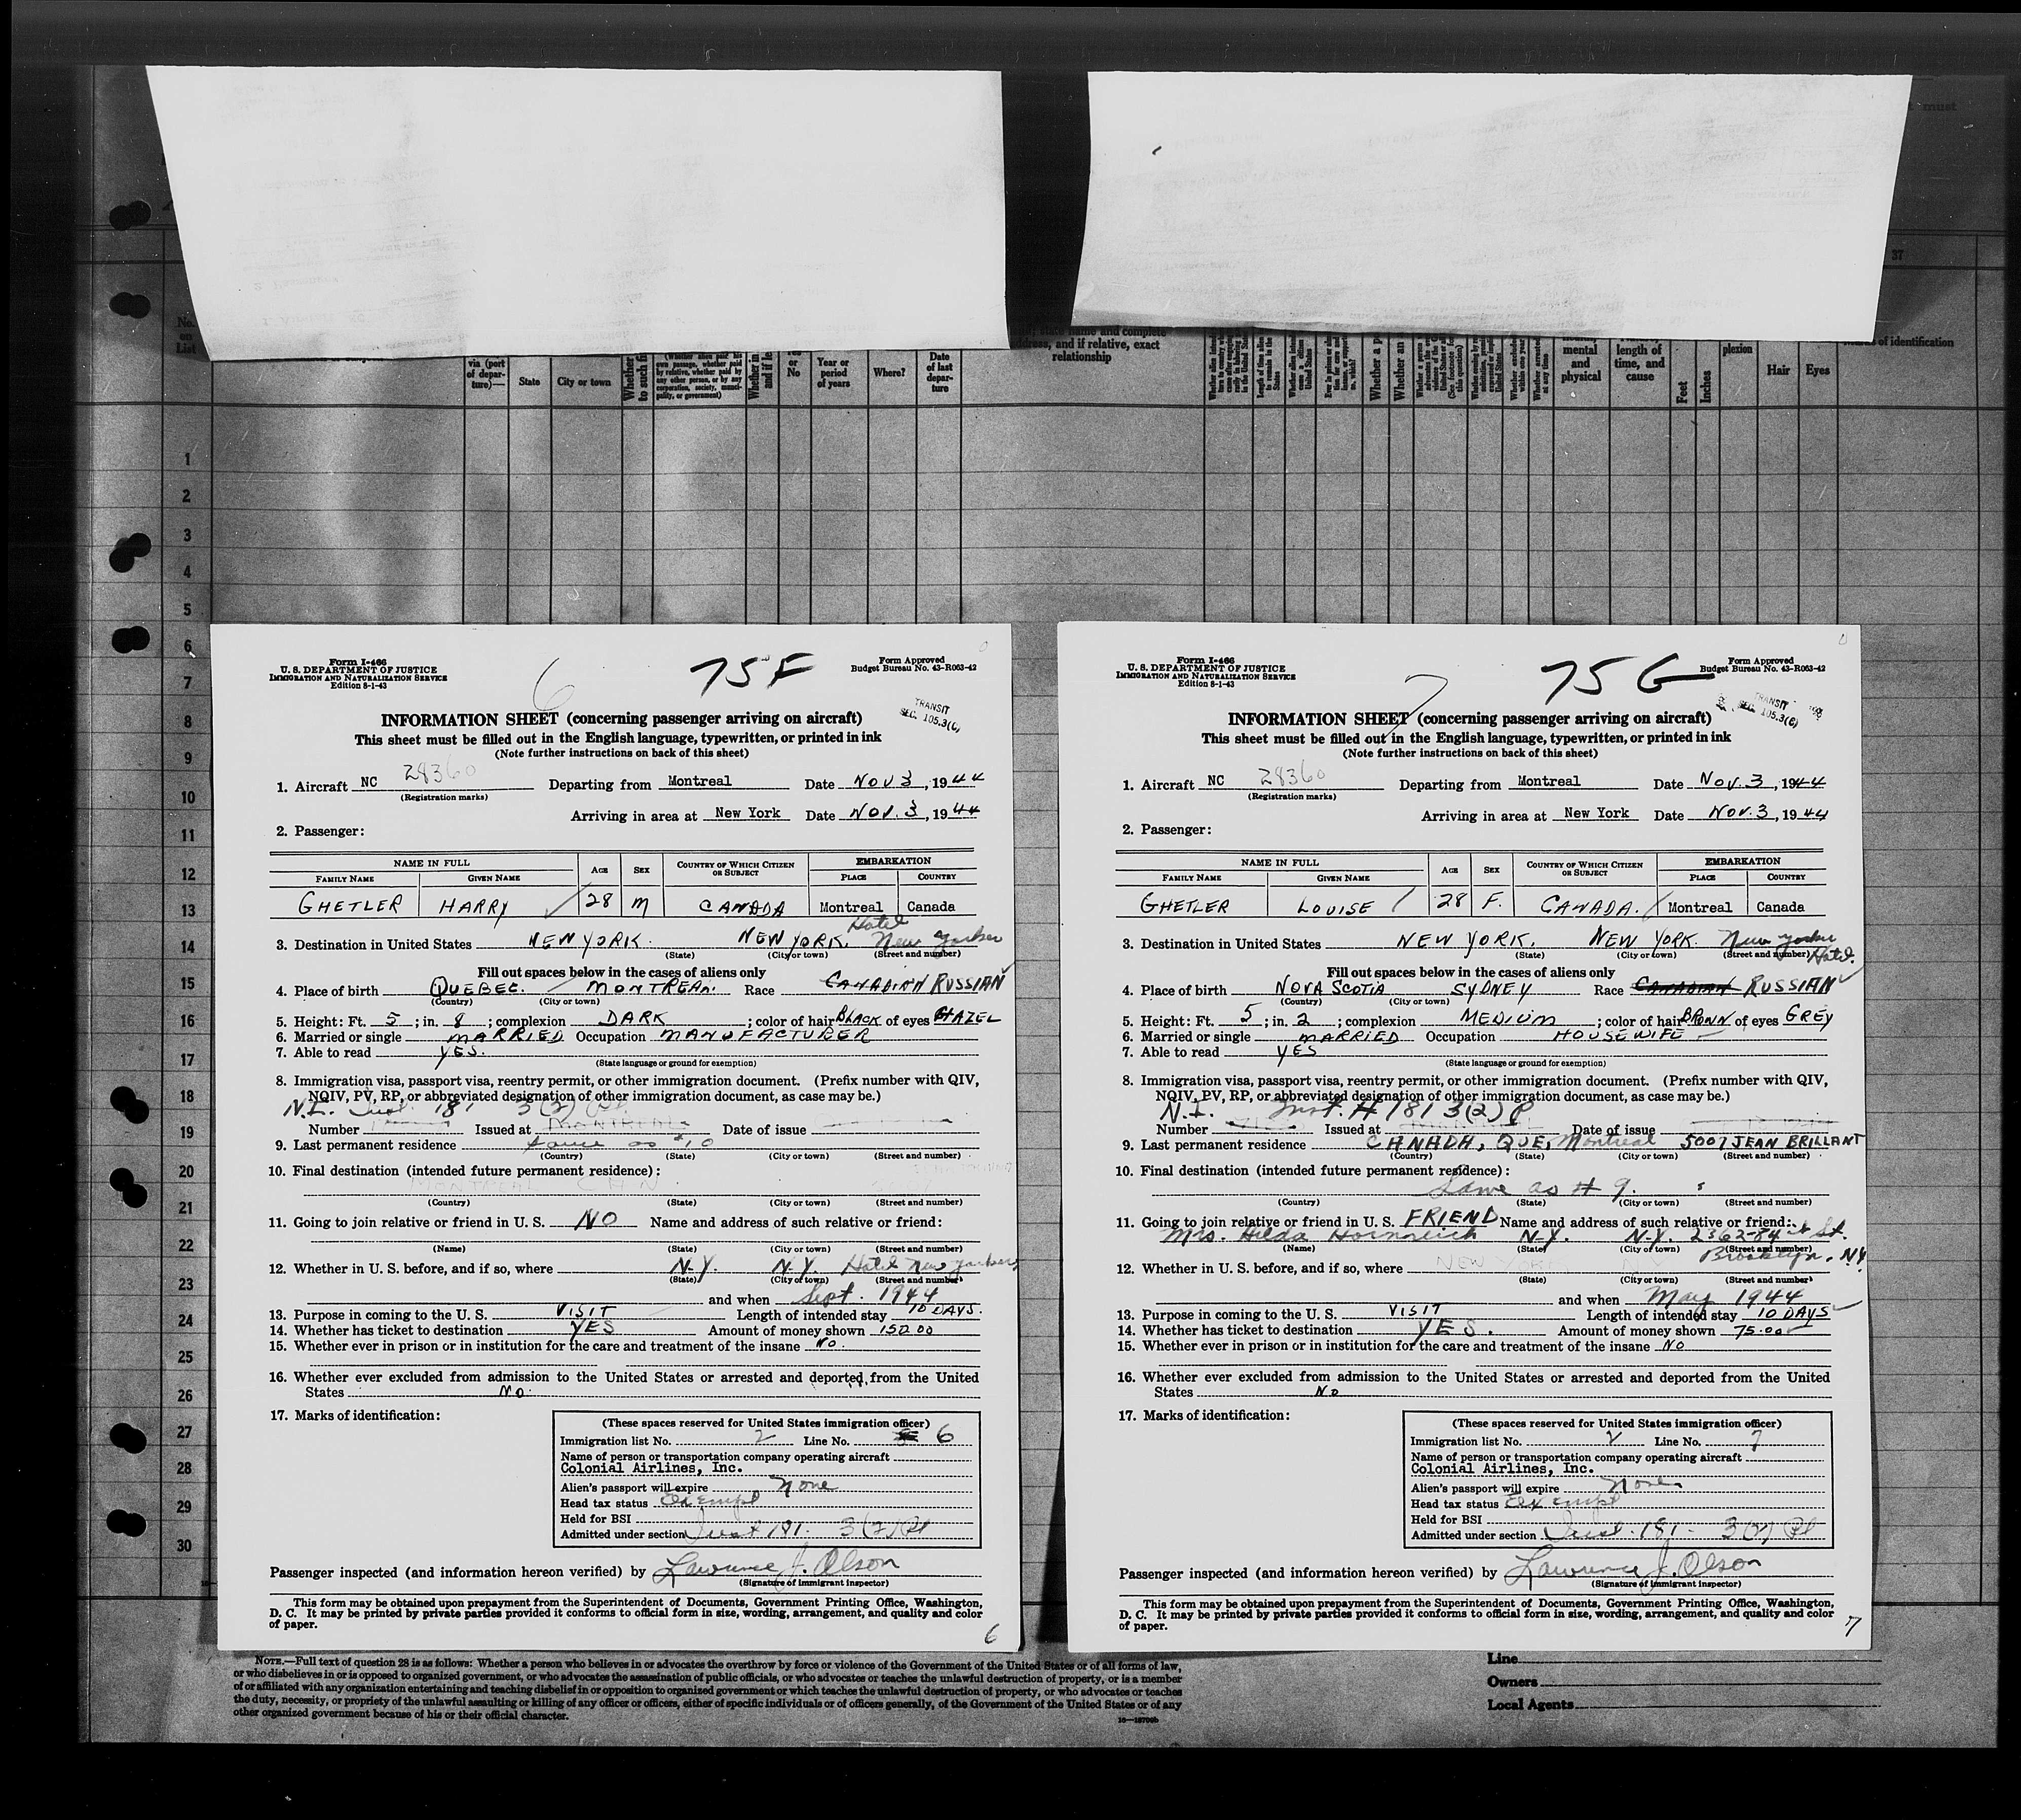 must
37
No.
on
List
via (port
of depar-
ture)—
State
City or town
Whether
to such fi
(Whether alien paid his
own passage, whether paid
by relative, whether paid by
any other person, or by any
corporation, society, munici-
pality, or government)
Whether in
and if le
or
No
Year or
period
of years
Where?
Date
of last
depar-
ture
name and complete
and if relative, exact
relationship
Whether a p
Whether an
mental
and
physical
length of
time, and
cause
Feet
Inches
plexion
Hair
Eyes
of identification
1
2
3
4
5
6
7
8
9
10
11
12
13
14
15
16
17
18
19
20
21
22
23
24
25
26
27
28
29
30
Form I-466
U. S. DEPARTMENT OF JUSTICE
IMMIGRATION AND NATURALIZATION SERVICE
Edition 8-1-43
6
75F
Form Approved
Budget Bureau No. 43-R063-42
TRANSIT
SEC. 105.3(C)
INFORMATION SHEET (concerning passenger arriving on aircraft)
This sheet must be filled out in the English language, typewritten, or printed in ink
(Note further instructions on back of this sheet)
1. Aircraft NC 28360 Departing from Montreal Date NOV 3, 1944
(Registration marks)
Arriving in area at New York Date NOV. 3, 1944
2. Passenger:
NAME IN FULL AGE SEX COUNTRY OF WHICH CITIZEN OR SUBJECT EMBARKATION
FAMILY NAME GIVEN NAME PLACE COUNTRY
GHETLER HARRY 28 M CANADA Montreal Canada
3. Destination in United States NEW YORK. NEW YORK. Hotel New Yorker
(State) (City or town) (Street and number)
Fill out spaces below in the cases of aliens only
4. Place of birth QUEBEC. MONTREAL. Race CANADIAN RUSSIAN
(Country) (City or town)
5. Height: Ft. 5; in. 8; complexion DARK; color of hair BLACK of eyes HAZEL
6. Married or single MARRIED Occupation MANUFACTURER
7. Able to read YES.
(State language or ground for exemption)
8. Immigration visa, passport visa, reentry permit, or other immigration document. (Prefix number with QIV,
NQIV, PV, RP, or abbreviated designation of other immigration document, as case may be.)
N.I. Inst. 181 3(2)
Number Issued at MONTREAL Date of issue
9. Last permanent residence same as #10
(Country) (State) (City or town) (Street and number)
10. Final destination (intended future permanent residence):
MONTREAL CAN.
(Country) (State) (City or town) (Street and number)
11. Going to join relative or friend in U. S. NO Name and address of such relative or friend:
(Name) (State) (City or town) (Street and number)
12. Whether in U. S. before, and if so, where N.Y. N.Y. Hotel New Yorker
(State) (City or town) (Street and number)
and when Sept. 1944
13. Purpose in coming to the U. S. VISIT Length of intended stay 10 DAYS.
14. Whether has ticket to destination YES Amount of money shown 150.00
15. Whether ever in prison or in institution for the care and treatment of the insane NO.
16. Whether ever excluded from admission to the United States or arrested and deported from the United
States NO.
17. Marks of identification:
(These spaces reserved for United States immigration officer)
Immigration list No. 2 Line No. 6
Name of person or transportation company operating aircraft
Colonial Airlines, Inc.
Alien's passport will expire None
Head tax status Exempt
Held for BSI
Admitted under section Inst 181. 3(2) Pl
Passenger inspected (and information hereon verified) by Lawrence J. Olson
(Signature of immigrant inspector)
This form may be obtained upon prepayment from the Superintendent of Documents, Government Printing Office, Washington,
D. C. It may be printed by private parties provided it conforms to official form in size, wording, arrangement, and quality and color
of paper.
6
Form I-466
U. S. DEPARTMENT OF JUSTICE
IMMIGRATION AND NATURALIZATION SERVICE
Edition 8-1-43
7
75G
Form Approved
Budget Bureau No. 43-R063-42
TRANSIT
SEC. 105.3(C)
INFORMATION SHEET (concerning passenger arriving on aircraft)
This sheet must be filled out in the English language, typewritten, or printed in ink
(Note further instructions on back of this sheet)
1. Aircraft NC 28360 Departing from Montreal Date NOV. 3, 1944
(Registration marks)
Arriving in area at New York Date NOV. 3, 1944
2. Passenger:
NAME IN FULL AGE SEX COUNTRY OF WHICH CITIZEN OR SUBJECT EMBARKATION
FAMILY NAME GIVEN NAME PLACE COUNTRY
GHETLER LOUISE 28 F. CANADA. Montreal Canada
3. Destination in United States NEW YORK. NEW YORK. New Yorker Hotel.
(State) (City or town) (Street and number)
Fill out spaces below in the cases of aliens only
4. Place of birth NOVA SCOTIA SYDNEY Race CANADIAN RUSSIAN
(Country) (City or town)
5. Height: Ft. 5; in. 2; complexion MEDIUM; color of hair BROWN of eyes GREY
6. Married or single MARRIED Occupation HOUSEWIFE
7. Able to read YES
(State language or ground for exemption)
8. Immigration visa, passport visa, reentry permit, or other immigration document. (Prefix number with QIV,
NQIV, PV, RP, or abbreviated designation of other immigration document, as case may be.)
N.I. Inst. # 181 3(2) P
Number Issued at Date of issue
9. Last permanent residence CANADA, QUE, Montreal 5007 JEAN BRILLANT
(Country) (State) (City or town) (Street and number)
10. Final destination (intended future permanent residence):
Same as # 9.
(Country) (State) (City or town) (Street and number)
11. Going to join relative or friend in U. S. FRIEND Name and address of such relative or friend:
Mrs. Hilda Hornreich N.Y. N.Y. 2362-84th St.
(Name) (State) (City or town) (Street and number)
Brooklyn, NY.
12. Whether in U. S. before, and if so, where NEW YORK
(State) (City or town) (Street and number)
and when May 1944
13. Purpose in coming to the U. S. VISIT Length of intended stay 10 DAYS
14. Whether has ticket to destination YES. Amount of money shown 75.00
15. Whether ever in prison or in institution for the care and treatment of the insane NO
16. Whether ever excluded from admission to the United States or arrested and deported from the United
States NO
17. Marks of identification:
(These spaces reserved for United States immigration officer)
Immigration list No. 2 Line No. 7
Name of person or transportation company operating aircraft
Colonial Airlines, Inc.
Alien's passport will expire None
Head tax status Exempt
Held for BSI
Admitted under section Inst. 181- 3(2) Pl
Passenger inspected (and information hereon verified) by Lawrence J. Olson
(Signature of immigrant inspector)
This form may be obtained upon prepayment from the Superintendent of Documents, Government Printing Office, Washington,
D. C. It may be printed by private parties provided it conforms to official form in size, wording, arrangement, and quality and color
of paper.
7
NOTE.—Full text of question 28 is as follows: Whether a person who believes in or advocates the overthrow by force or violence of the Government of the United States or of all forms of law,
or who disbelieves in or is opposed to organized government, or who advocates the assassination of public officials, or who advocates or teaches the unlawful destruction of property, or is a member
of or affiliated with any organization entertaining and teaching disbelief in or opposition to organized government or which teaches the unlawful destruction of property, or who advocates or teaches
the duty, necessity, or propriety of the unlawful assaulting or killing of any officer or officers, either of specific individuals or of officers generally, of the Government of the United States or of any
other organized government because of his or their official character.
Line
Owners
Local Agents